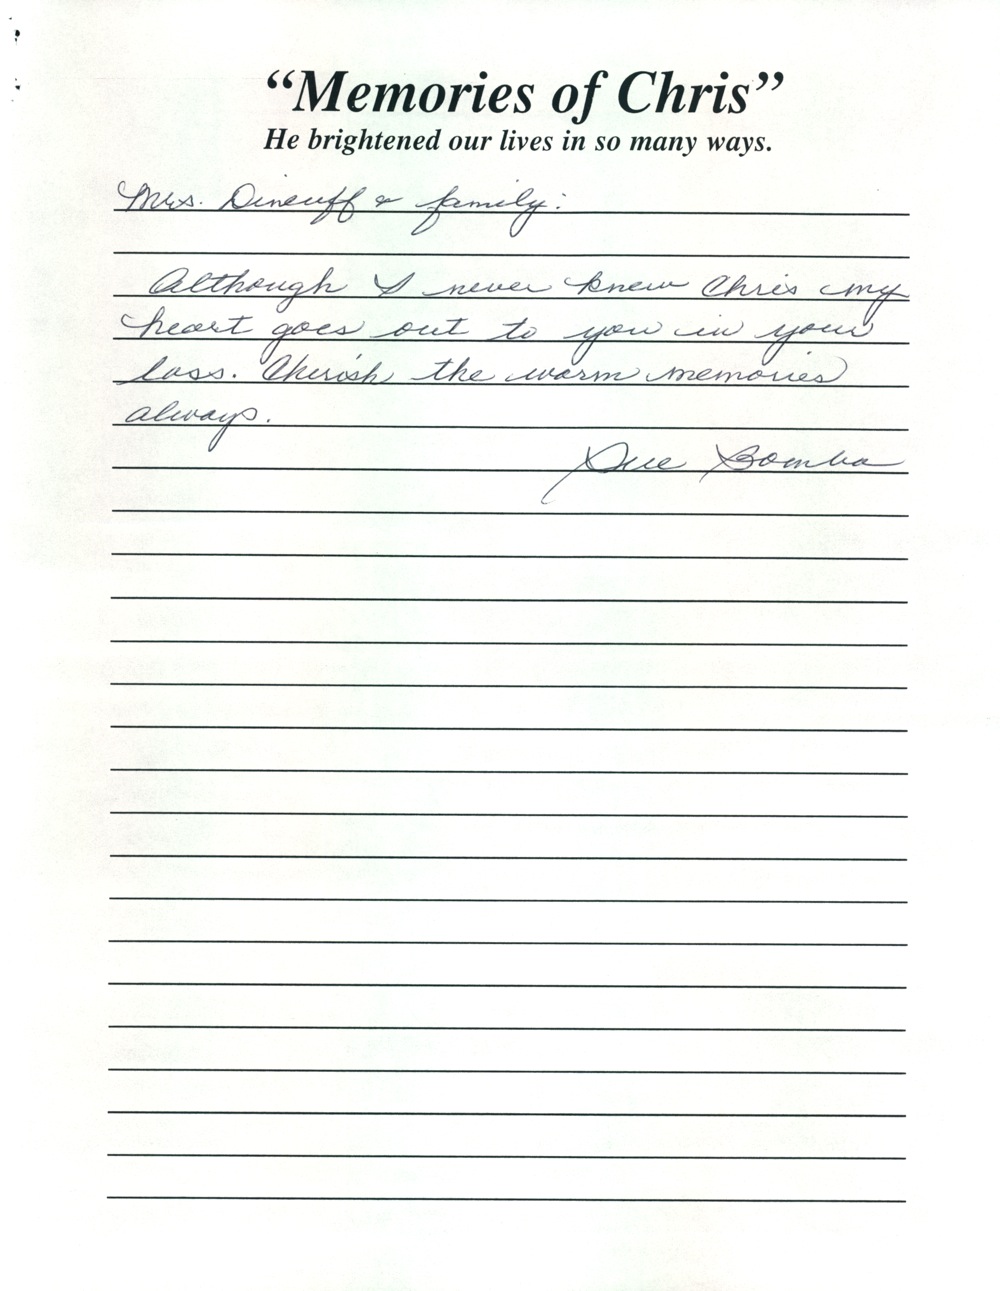 “Memories of Chris”
He brightened our lives in so many ways.
Mrs. Dineuff & family:
Although I never knew Chris my
heart goes out to you in your
loss. Cherish the warm memories
always.
Sue Bomba